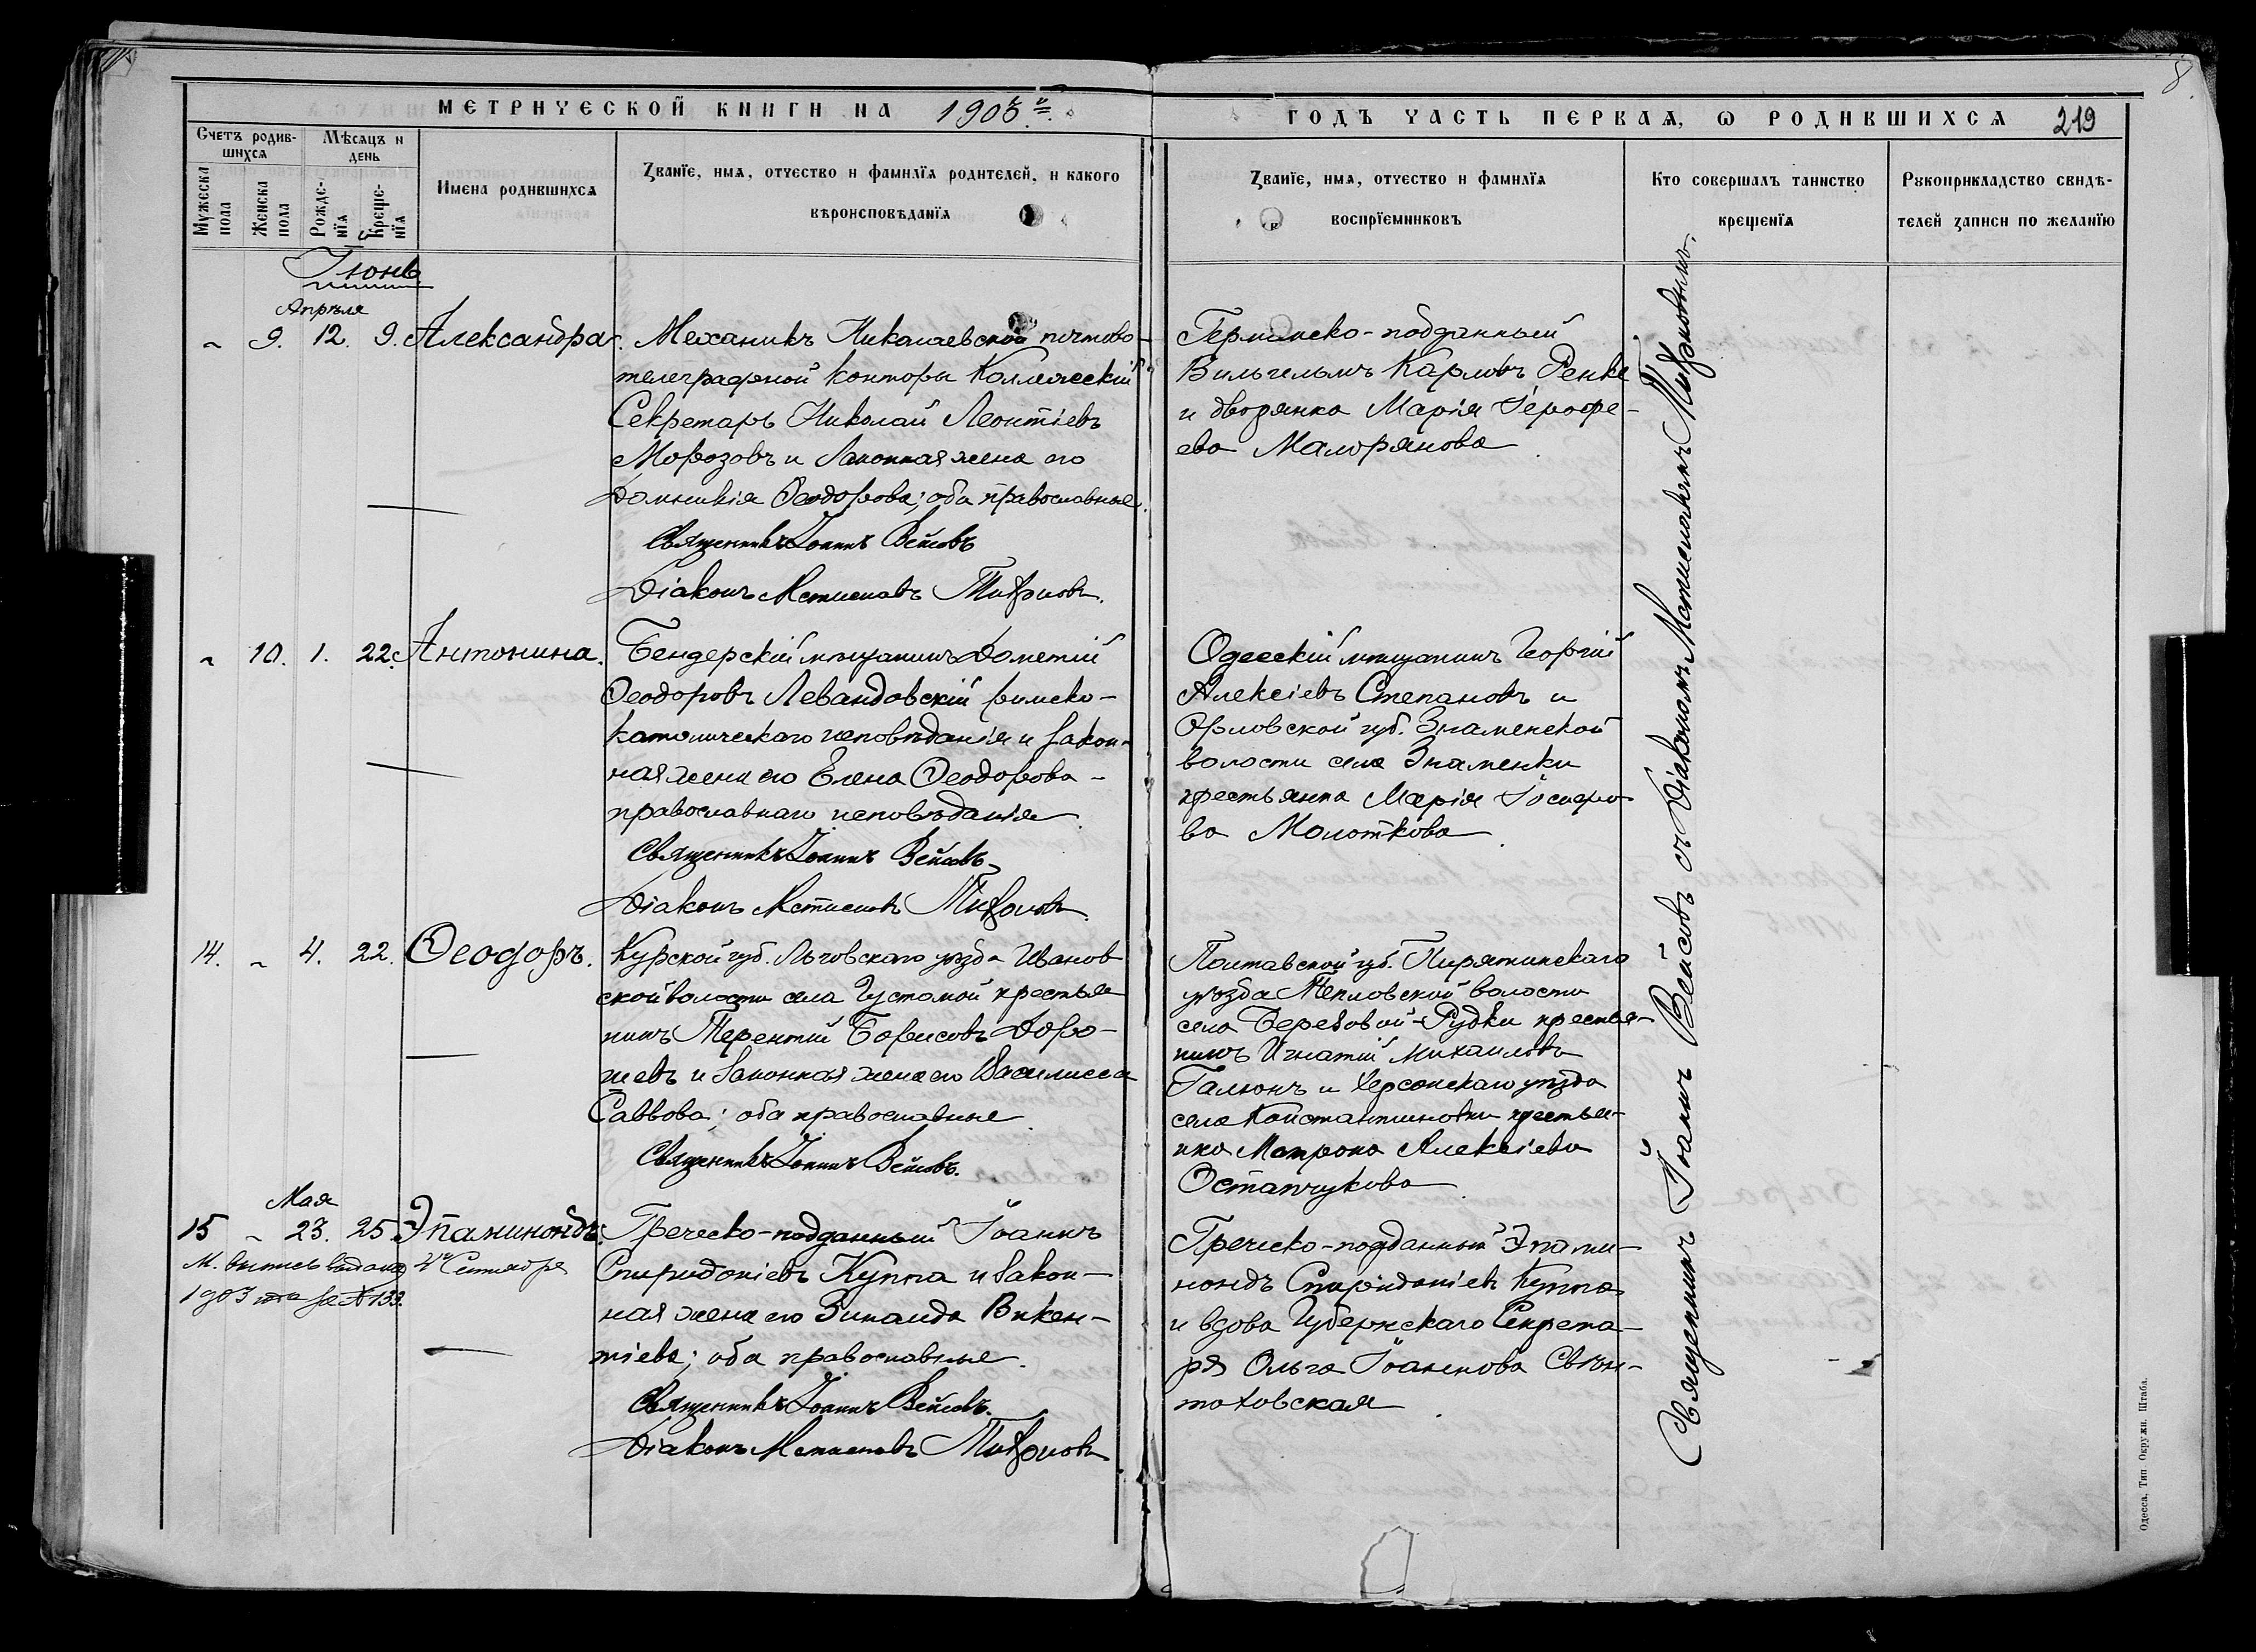 8.
МЕТРИЧЕСКОЙ КНИГИ НА 1903й.
ГОДЪ ЧАСТЬ ПЕРВАЯ, Ѡ РОДИВШИХСЯ 219
Счетъ родив-
шихся
Мѣсяцъ и
день
Мужеска
пола
Женска
пола
Рожде-
нїя
Креще-
нїя
Имена родившихся
Званїе, имя, отчество и фамилїя родителей, и какого
вѣроисповѣданїя
Званїе, имя, отчество и фамилїя
воспрїемниковъ
Кто совершалъ таинство
крещенїя
Рукоприкладство свидѣ-
телей записи по желанїю
Іюнь
Апрѣля
9. 12. 9. Александра.
Механикъ Николаевской почтово-
телеграфной конторы Коллежскій
Секретарь Николай Леонтіевъ
Морозовъ и законная жена его
Домникія Ѳеодорова; оба православные.
Священникъ Іоаннъ Вейсовъ
Діаконъ Мстиславъ
Германско-подданный
Вильгельмъ Карловъ Ренке
и дворянка Марія Іерофе-
ева
10. 1. 22. Антонина.
Бендерскій мѣщанинъ Дометій
Ѳеодоровъ Левандовскій римско-
католическаго исповѣданія и закон-
ная жена его Елена Ѳеодорова -
православнаго исповѣданія.
Священникъ Іоаннъ Вейсовъ
Діаконъ Мстиславъ
Одесскій мѣщанинъ Георгій
Алексіевъ Степановъ и
Орловской губ. Знаменской
волости села Знаменки
крестьянка Марія Іосифо-
ва Молоткова.
14. 4. 22. Ѳеодоръ.
Курской губ. Льговскаго уѣзда Иванов
ской волости села Густомой крестья
нинъ Терентій Борисовъ Доро-
шевъ и законная жена его Василисса
Саввова; оба православные.
Священникъ Іоаннъ Вейсовъ.
Полтавской губ. Пирятинскаго
уѣзда волости
села Березовой-Рудки крестья-
нинъ Игнатій Михаиловъ
Галюнъ и Херсонскаго уѣзда
села Константиновки крестья-
нка Матрона Алексіева
Остапчукова.
Мая
15 23. 25 Эпаминондъ.
М. выпись выдана 4го Сентября
1903 года за № 133.
Греческо-подданный Іоаннъ
Спиридоніевъ Куппа и закон-
ная жена его Зинаида Викен-
тіева; оба православные.
Священникъ Іоаннъ Вейсовъ.
Діаконъ Мстиславъ
Греческо-подданный Эпами-
нондъ Спиридоніевъ Куппа
и вдова Губернскаго Секрета-
ря Ольга Іоаннова Свѣн-
тоховская.
Священникъ Іоаннъ Вейсовъ съ Діакономъ Мстиславомъ
Одесса, Тип. Окружн. Штаба.